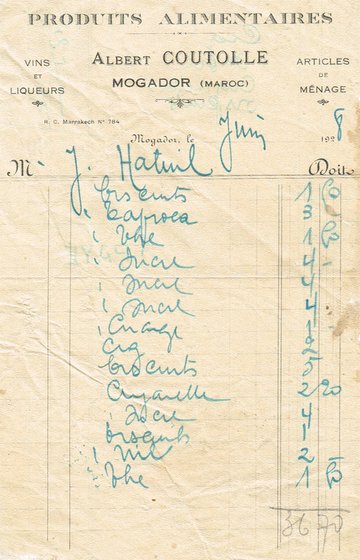 PRODUITS ALIMENTAIRES
VINS
ET
LIQUEURS
Albert COUTOLLE
MOGADOR (MAROC)
ARTICLES
DE
MÉNAGE
R. C. Marrakech N° 784
Mogador, le Juin 1928
M J. Hatuil Doit
biscuits 1 50
3
the 1 50
sucre 4 -
sucre 4
sucre 4
orange 1
cig 2
biscuits 5
2 20
sucre 4
biscuits 1
2
the 1 50
36 70